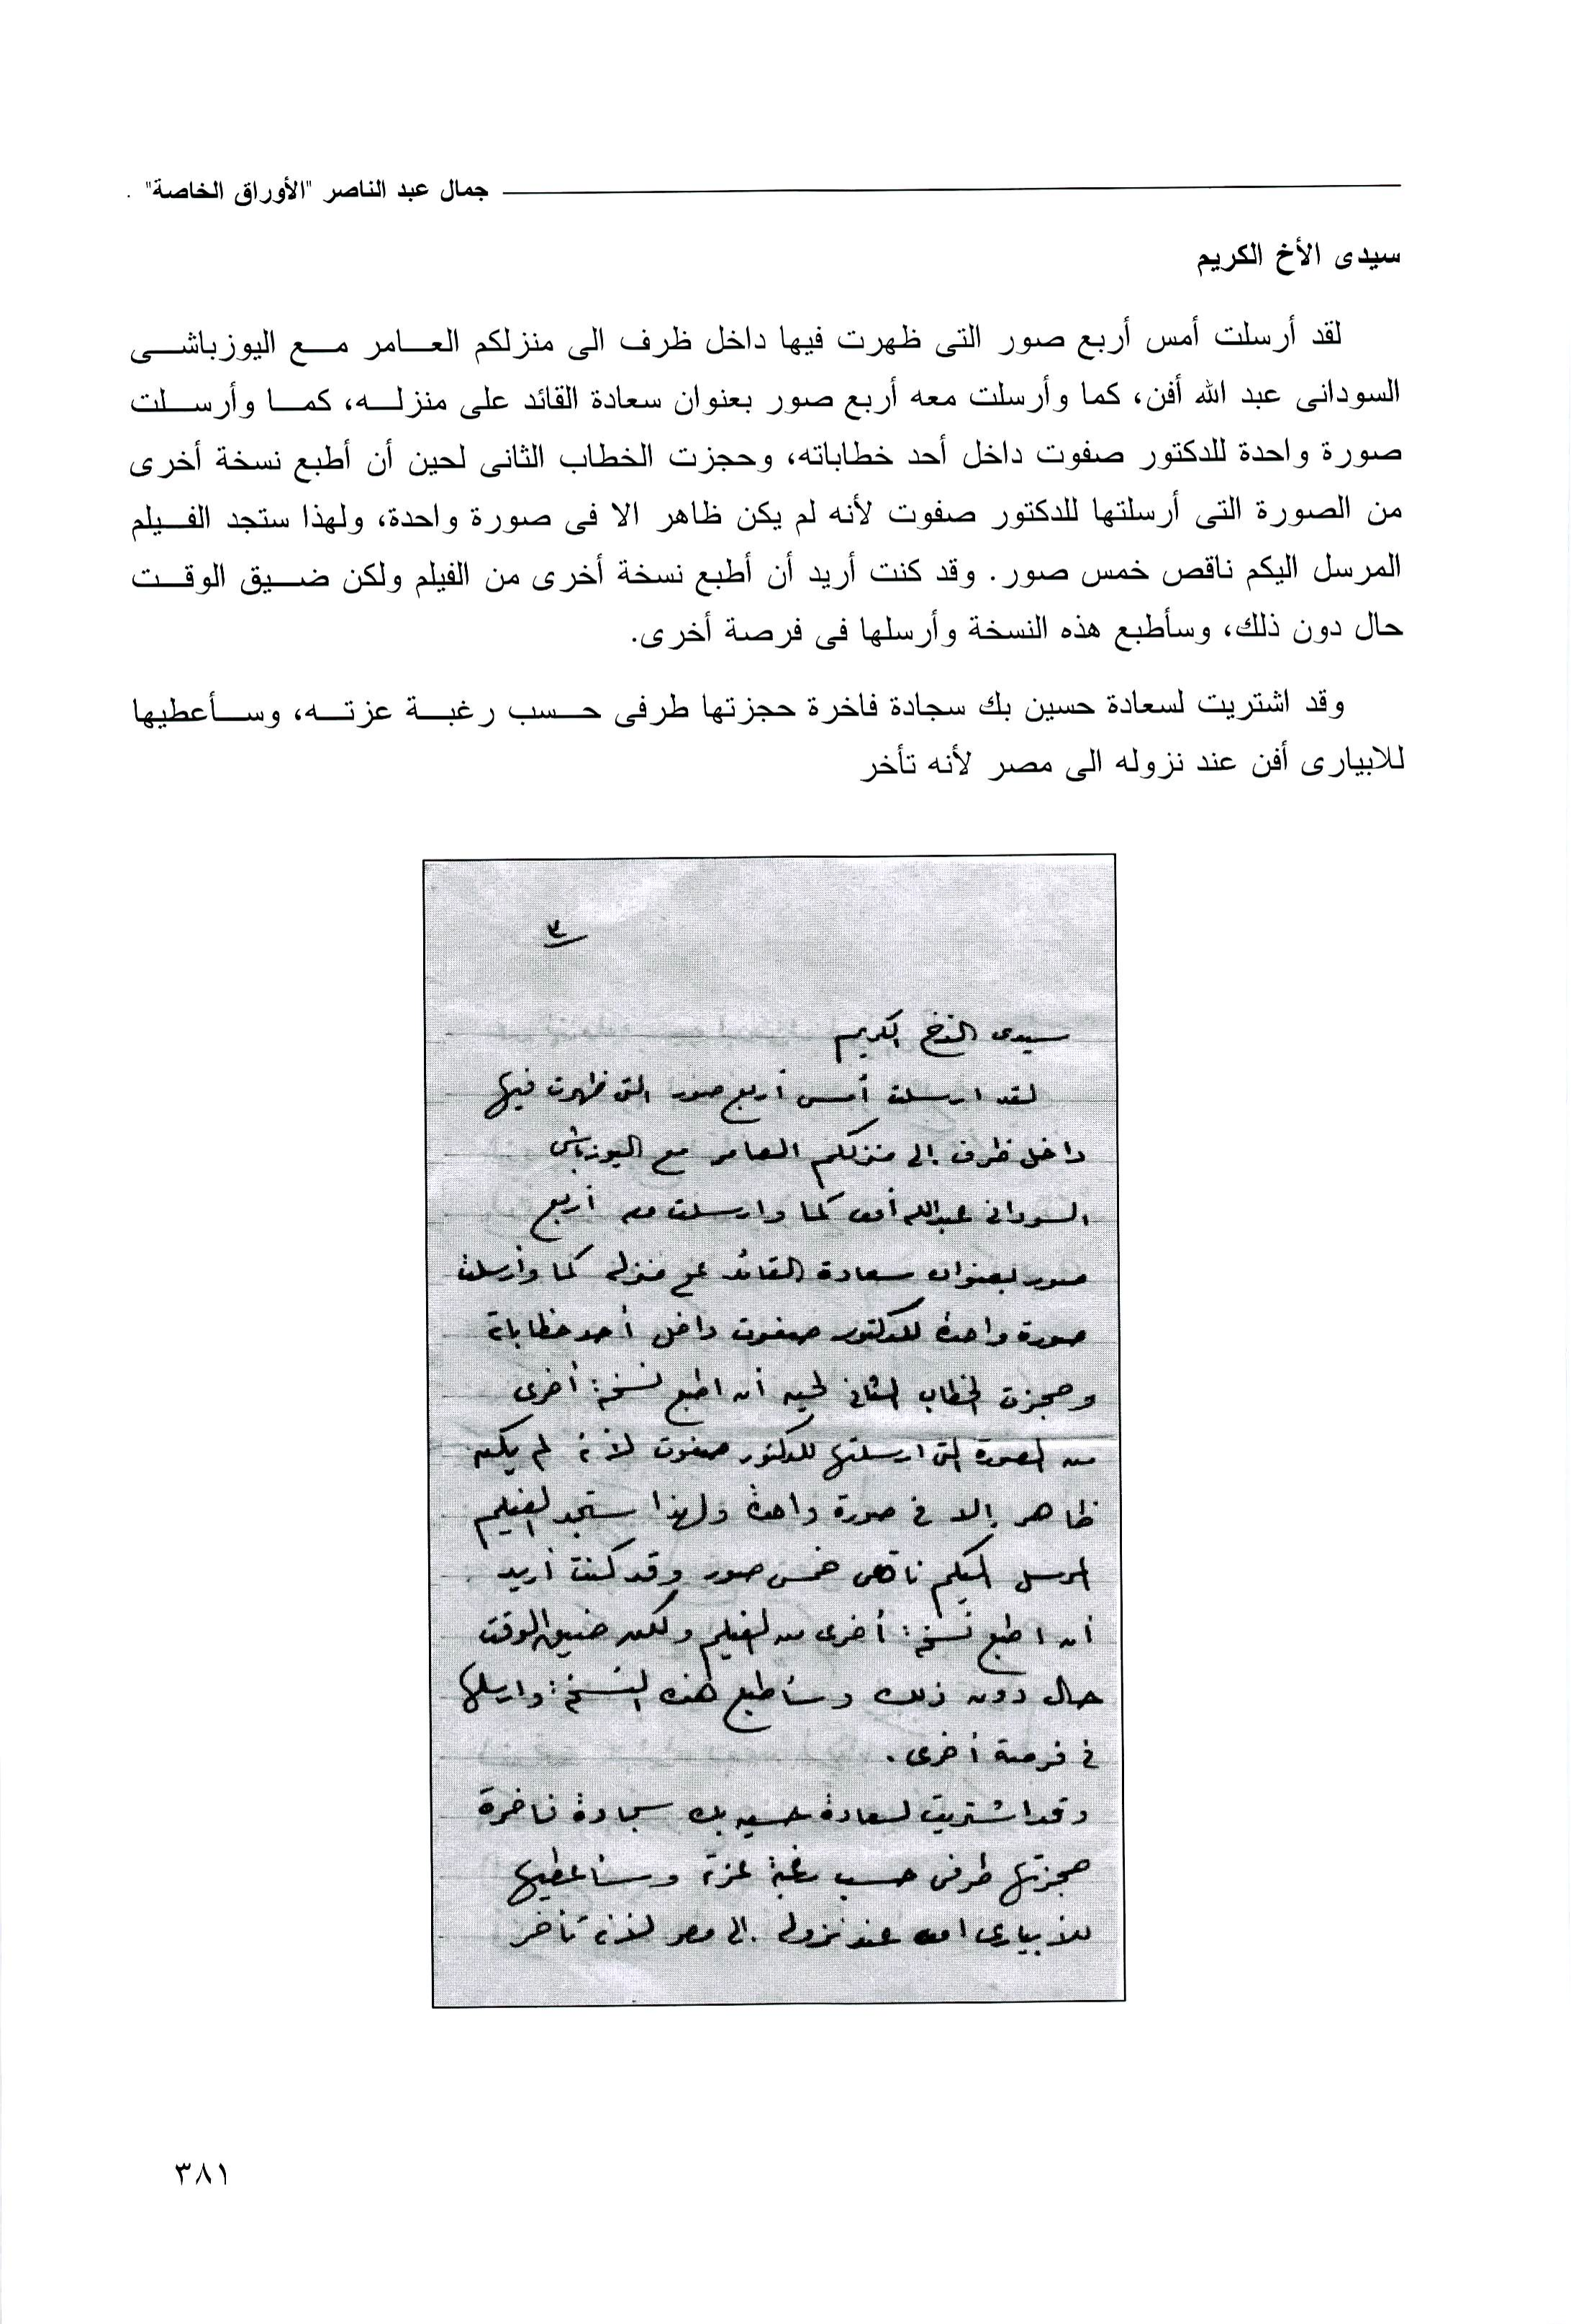 جمال عبد الناصر "الأوراق الخاصة" .
سيدى الأخ الكريم
لقد أرسلت أمس أربع صور التى ظهرت فيها داخل ظرف الى منزلكم العامر مع اليوزباشى
السودانى عبد الله أفن، كما وأرسلت معه أربع صور بعنوان سعادة القائد على منزله، كما وأرسلت
صورة واحدة للدكتور صفوت داخل أحد خطاباته، وحجزت الخطاب الثانى لحين أن أطبع نسخة أخرى
من الصورة التى أرسلتها للدكتور صفوت لأنه لم يكن ظاهر الا فى صورة واحدة، ولهذا ستجد الفيلم
المرسل اليكم ناقص خمس صور. وقد كنت أريد أن أطبع نسخة أخرى من الفيلم ولكن ضيق الوقت
حال دون ذلك، وسأطبع هذه النسخة وأرسلها فى فرصة أخرى.
وقد اشتريت لسعادة حسين بك سجادة فاخرة حجزتها طرفى حسب رغبة عزته، وسأعطيها
للابيارى أفن عند نزوله الى مصر لأنه تأخر
٣
سيدى الأخ الكريم
لقد ارسلت أمس أربع صور التى ظهرت فيها
داخل ظرف إلى منزلكم العامر مع اليوزباشى
السودانى عبد الله أفن كما وارسلت معه أربع
صور بعنوان سعادة القائد على منزله كما وأرسلت
صورة واحدة للدكتور صفوت داخل أحد خطاباته
وحجزت الخطاب الثانى لحين أن اطبع نسخة أخرى
من الصورة التى ارسلتها للدكتور صفوت لأنه لم يكن
ظاهر إلا فى صورة واحدة ولهذا ستجد الفيلم
المرسل اليكم ناقص خمس صور وقد كنت أريد
أن اطبع نسخة أخرى من الفيلم ولكن ضيق الوقت
حال دون ذلك وسأطبع هذه النسخة وارسلها
فى فرصة أخرى .
وقد اشتريت لسعادة حسين بك سجادة فاخرة
حجزتها طرفى حسب رغبة عزته وسأعطيها
للأبيارى افن عند نزوله إلى مصر لأنه تأخر
٣٨١